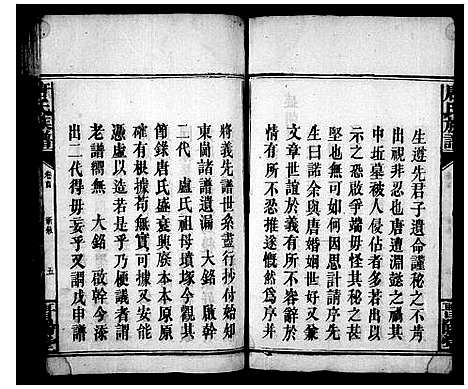 生遵先君子遺命謹秘之不肯
出視非忍也唐遭淵懿之禍其
中坵墓被人侵佔者多許由出
奇而平之爭端毋怪其秘之甚
堅也無可如何因思計請序先
生曰諾余與唐婚姻世好又兼
文章世誼於義有所不容辭於
情有所不忍推遂慨然爲序并
將義先譜世系盡行抄付始知
東閣諸譜遺漏 大銘 啟幹
二代 盧氏祖母墳塚今觀其
節錄唐氏盛衰興廢本本原原
確有根據苟無實可據又安能
憑虛以造若是乎乃梗議者謂
老譜襴無 大銘 啟幹今添
出二代得毋妄乎又謂戊申譜
唐氏族譜
卷首
新敘
五